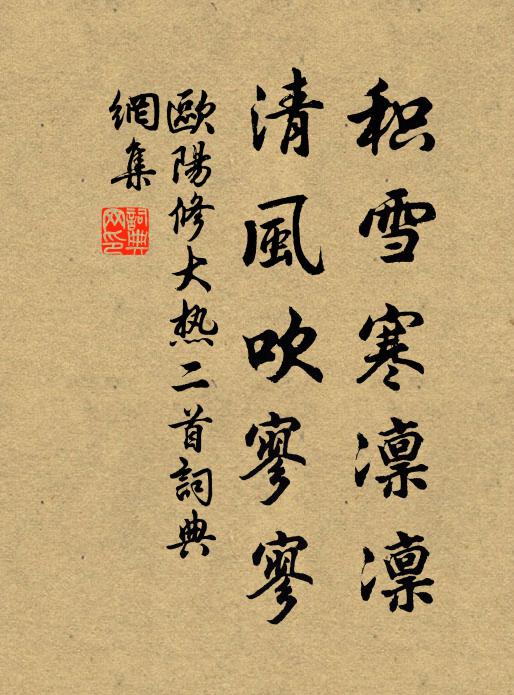 积雪寒凛凛
清風吹寥寥
歐陽修大热二首詞典
網集
詞典
网印